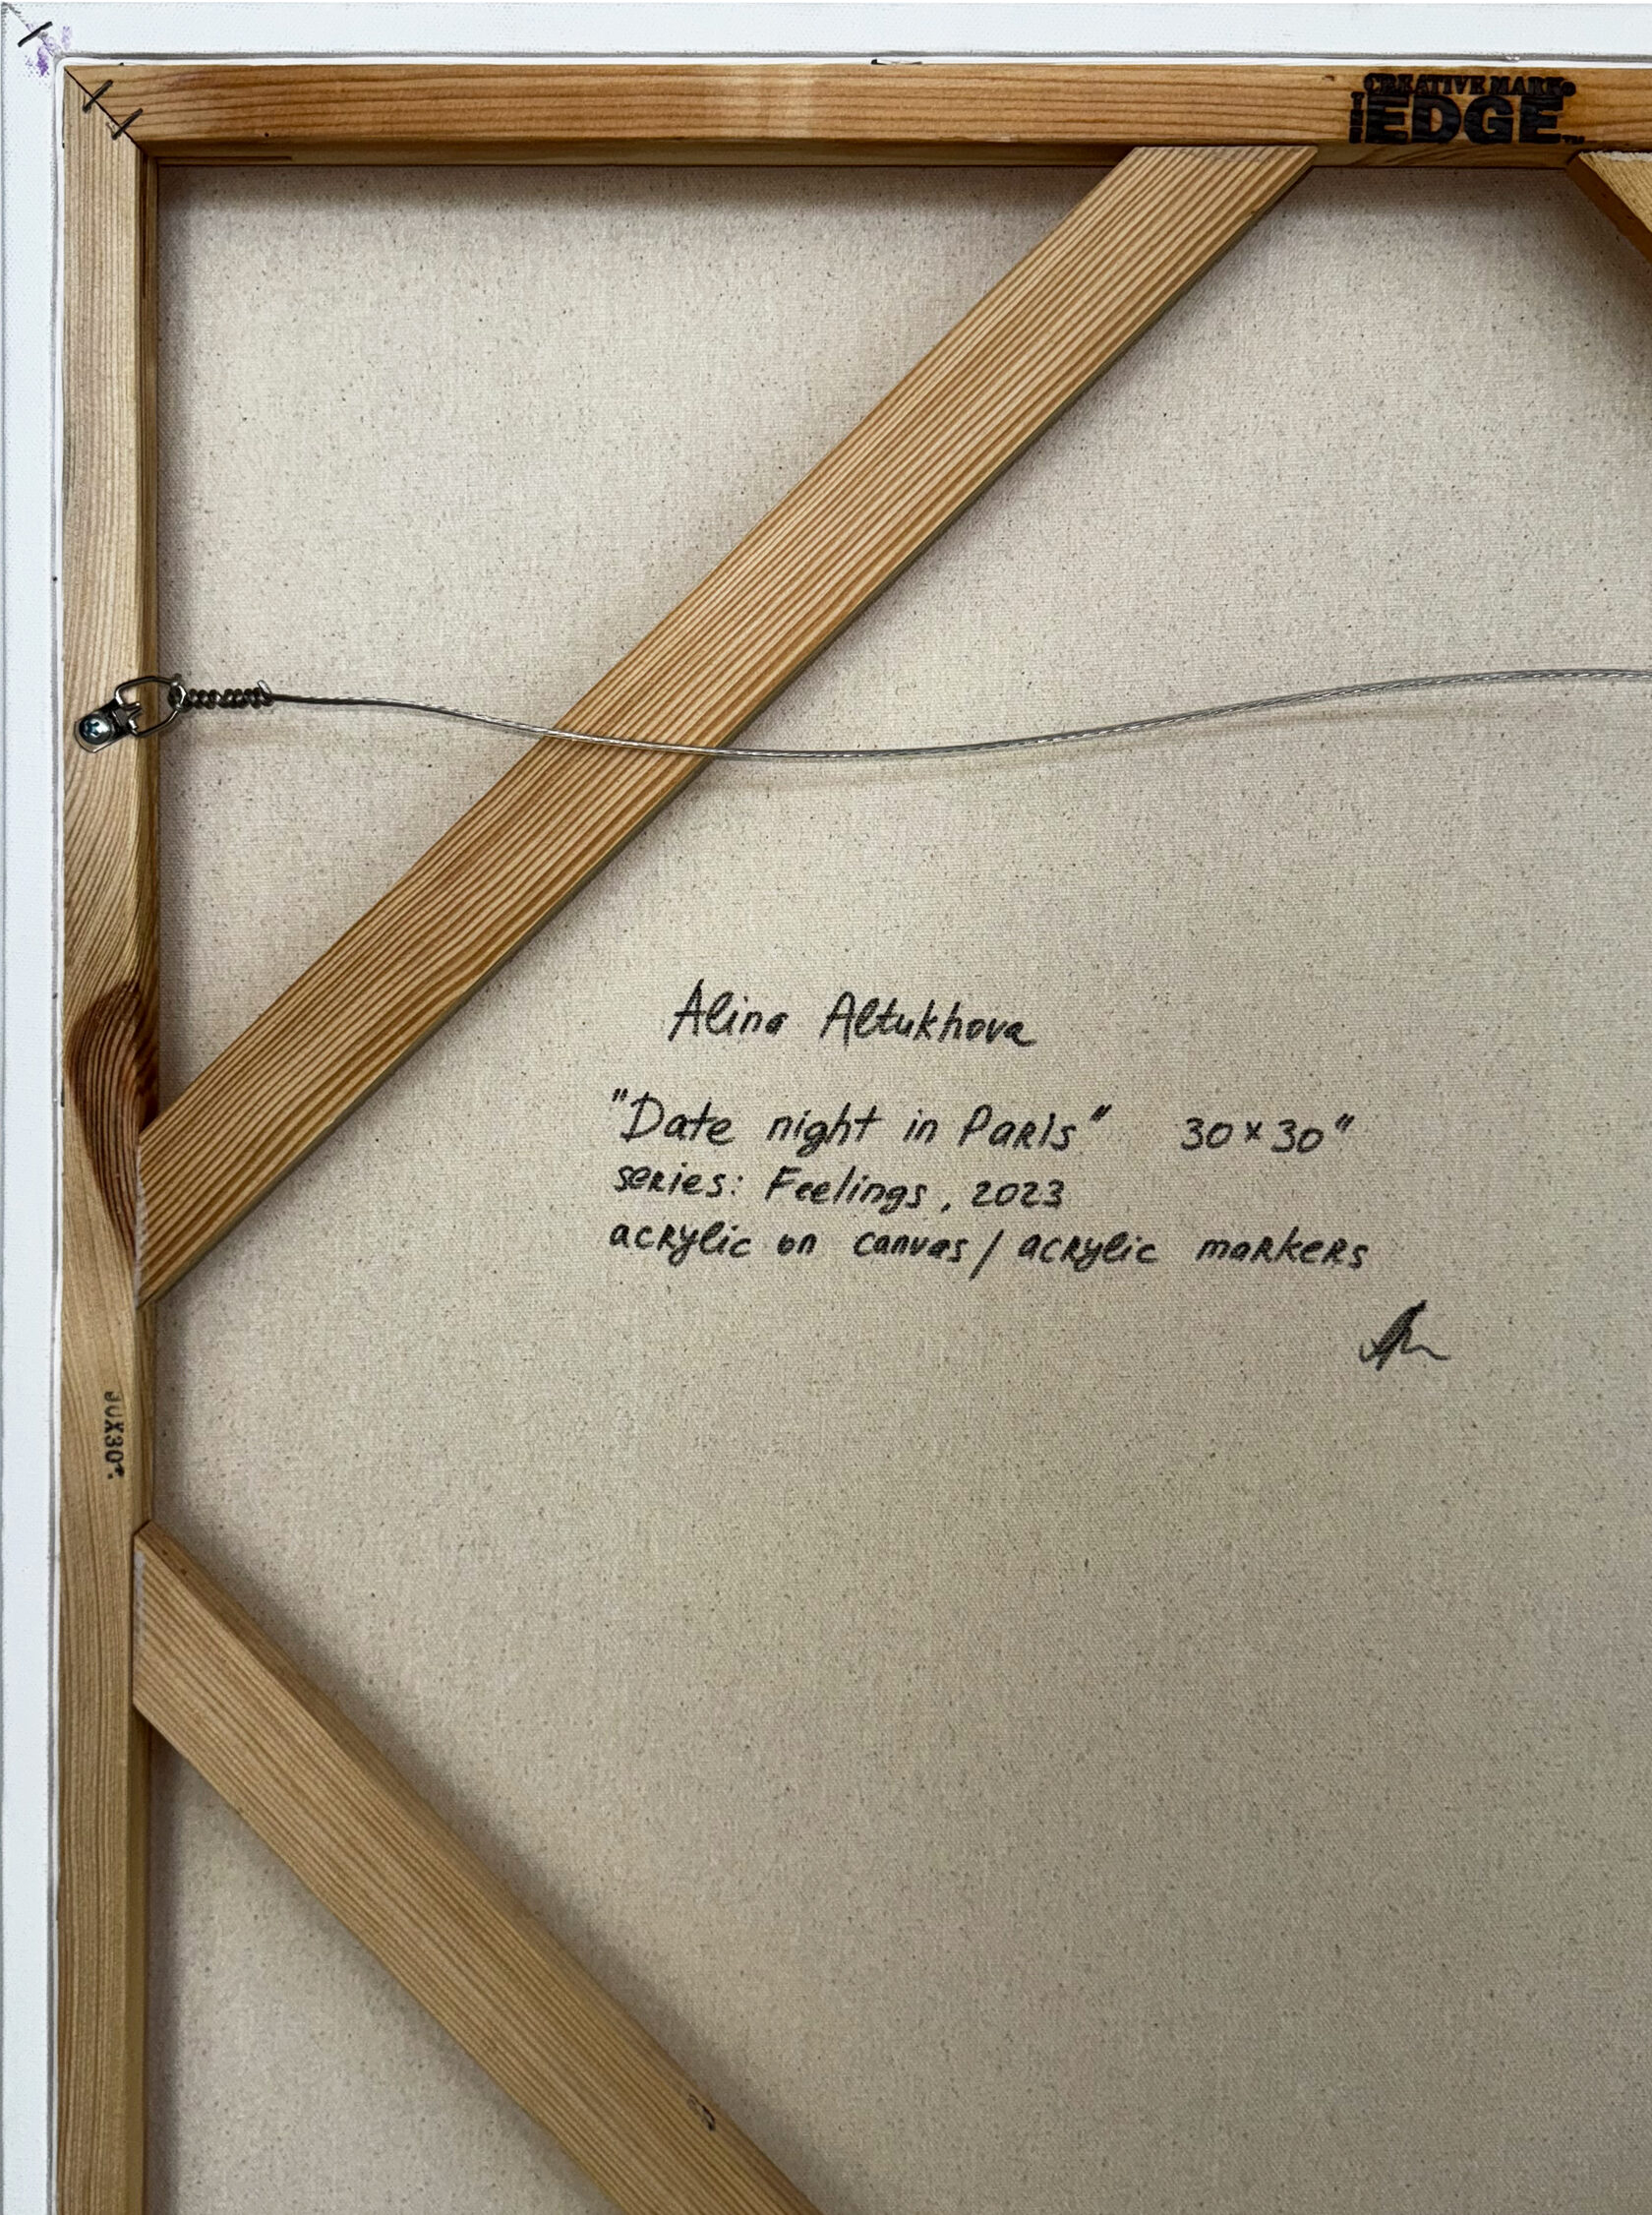 CREATIVE MARK
THE EDGE™
Alina Altukhova
"Date night in Paris" 30×30"
series: Feelings, 2023
acrylic on canvas / acrylic markers